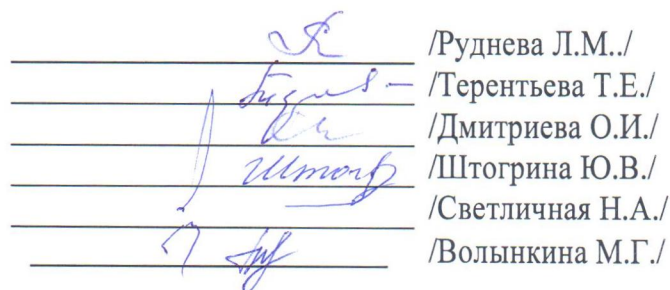 /Руднева Л.М../
/Терентьева Т.Е./
/Дмитриева О.И./
Штогр /Штогрина Ю.В./
/Светличная Н.А./
/Волынкина М.Г./